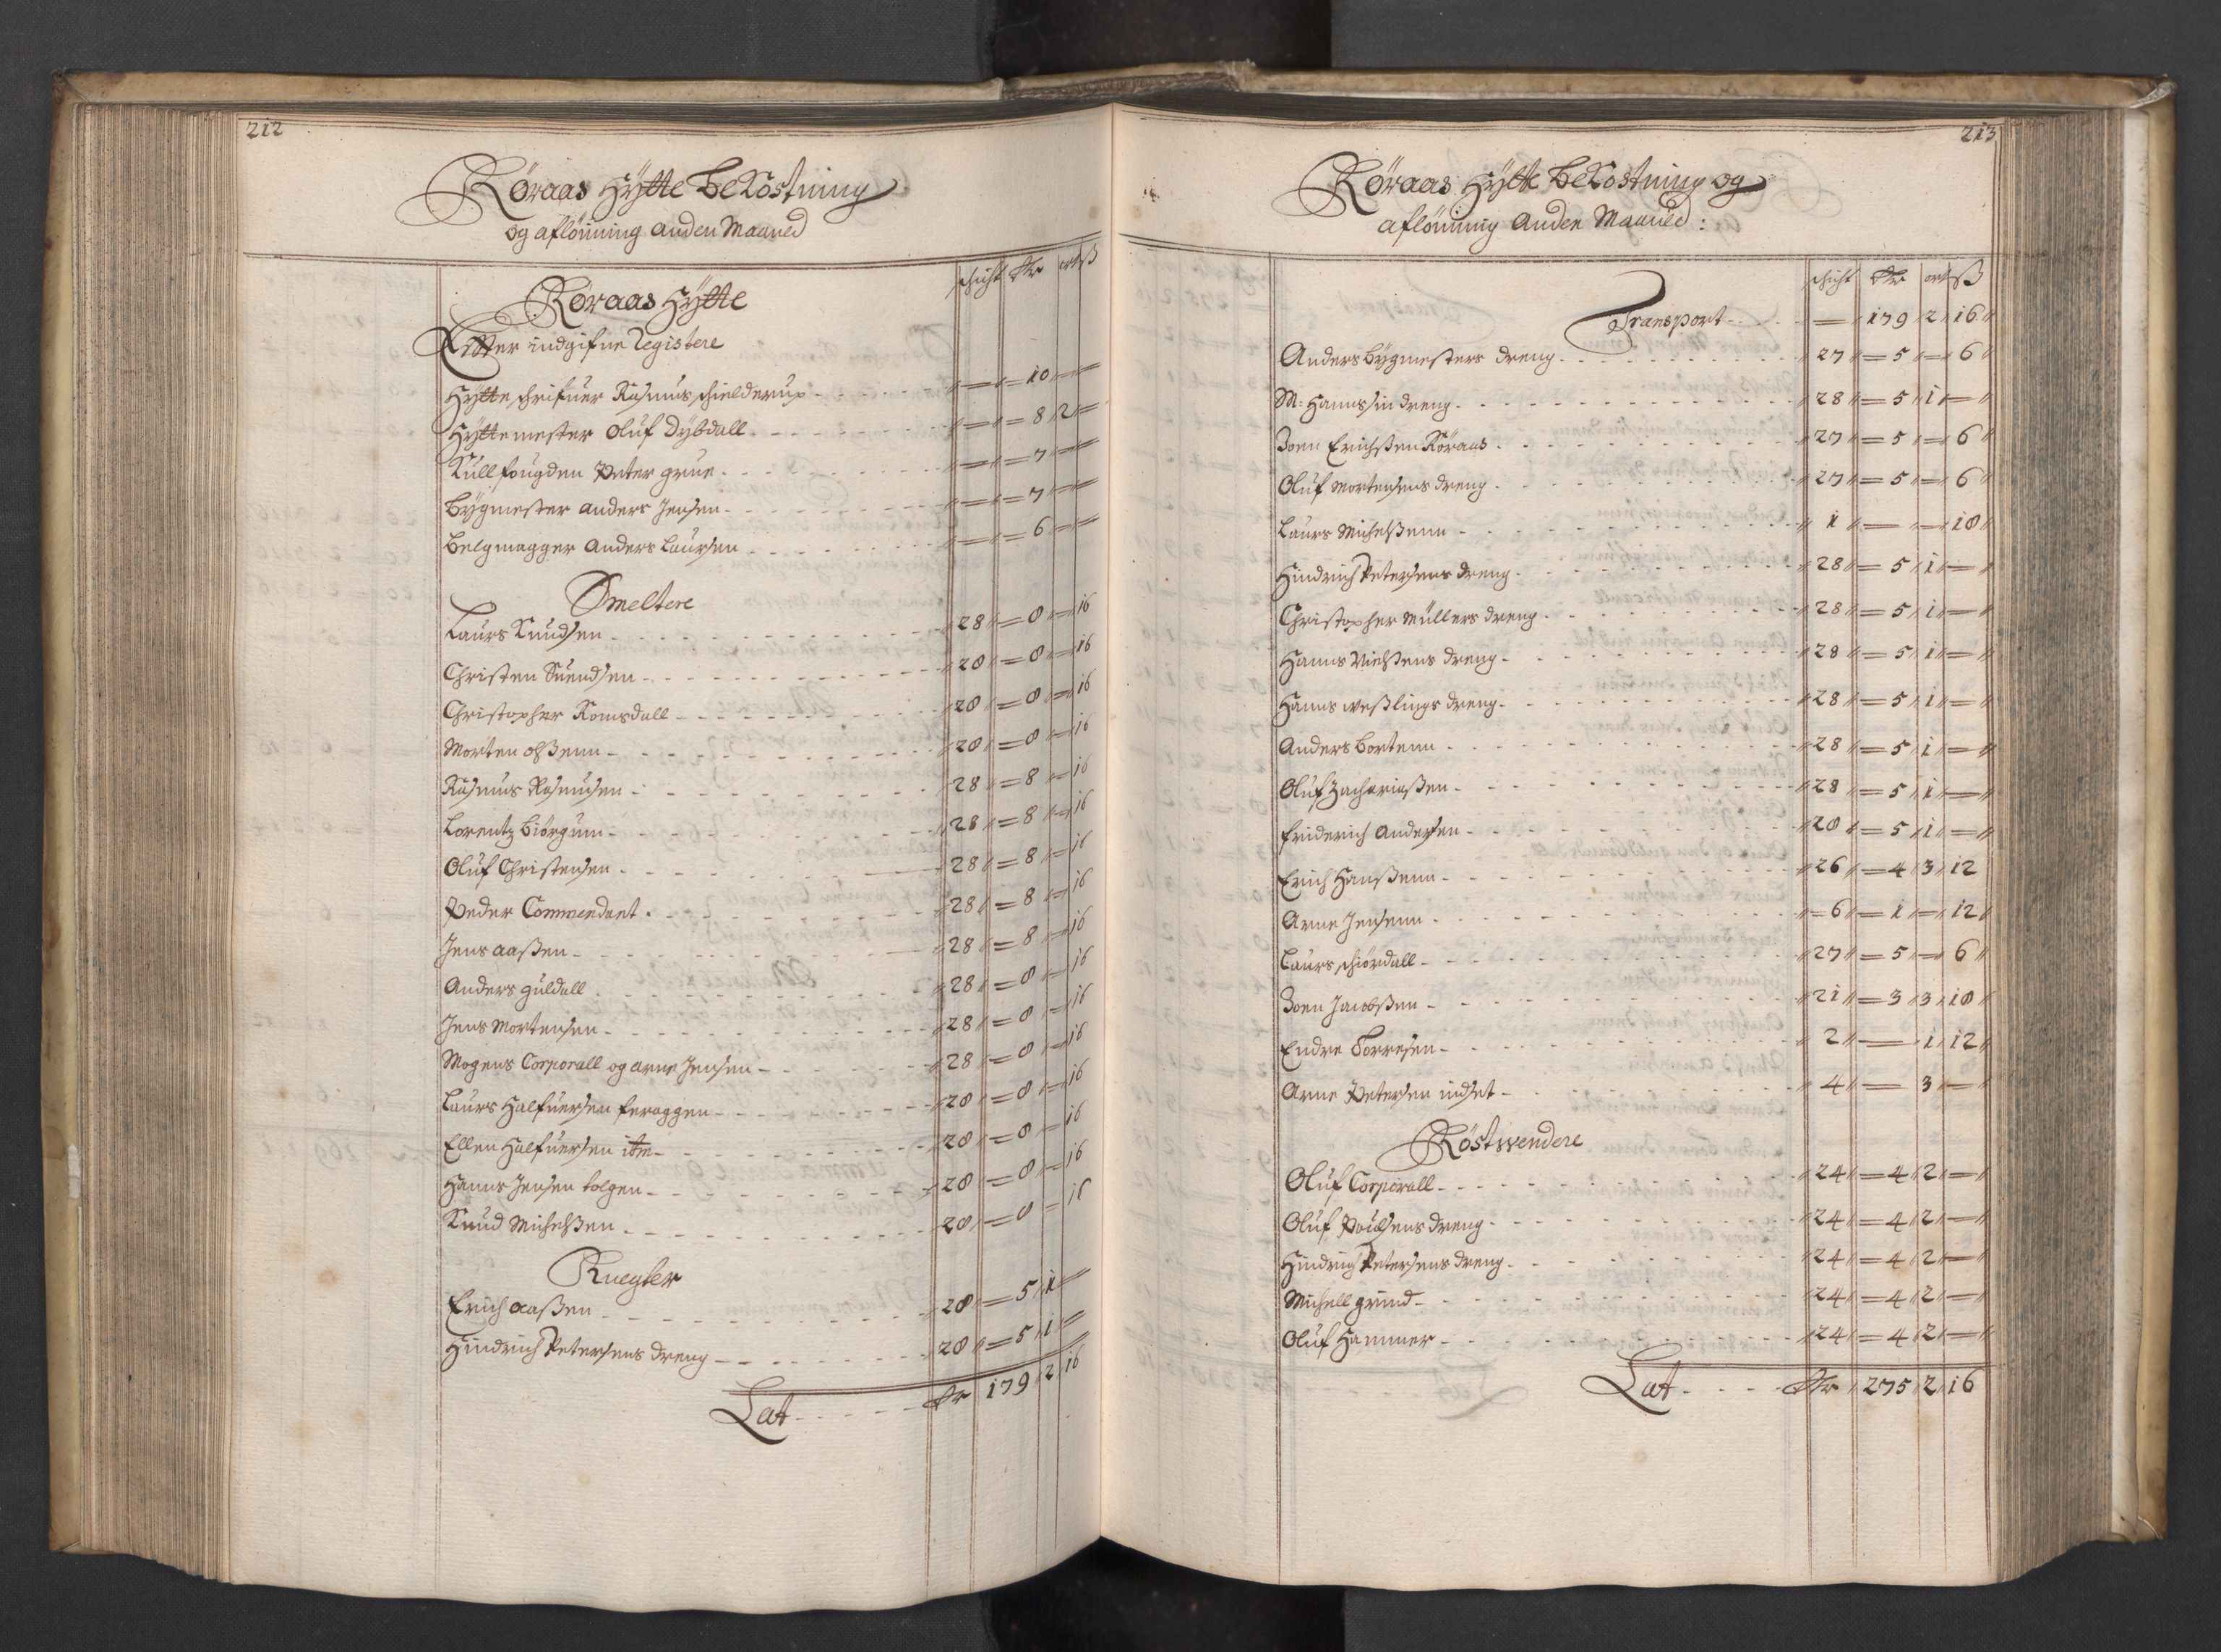 212
Røraas Hÿtte bekostning
og aflönning anden Maaned
schicht Rdr ort ß
Røraas Hÿtte
Efter indgifne Registere
Hÿtteschrifuer Rasmus schielderup - - - 10 - -
Hÿttemester Oluf Dÿbdall - - - 8 2 -
Kullfougden Peter grue - - - 7 - -
Bÿgmester Anders Jensen - - - 7 - -
Belgmagger Anders Laursen - - - 6 - -
Smeltere
Laurs Knudsen - - 28 8 - 16
Christen Suendsen - - 28 8 - 16
Christopher Romsdall - - 28 8 - 16
Morten olßenn - - 28 8 - 16
Rasmus Rasmusen - - 28 8 - 16
Lorentz biörgum - - 28 8 - 16
Oluf Christensen - - 28 8 - 16
Peder Commendant - - 28 8 - 16
Jens aaßen - - 28 8 - 16
Anders guldall - - 28 8 - 16
Jens Mortensen - - 28 8 - 16
Mogens Corporall og arne Jensen - - 28 8 - 16
Laurs Halfuersen feraggen - - 28 8 - 16
Ellen Halfuersen itm - - 28 8 - 16
Hanns Jensen tolgen - - 28 8 - 16
Knud Michelßen - - 28 8 - 16
Knegter
Erich aaßen - - 28 5 1 -
Hindrich Petersens dreng - - 28 5 1 -
Lat - - Rdr 179 2 16
213
Røraas Hÿtte bekostning og
aflönning Anden Maaned:
schicht Rdr ort ß
Transport - - 179 2 16
Anders bÿgmesters dreng - - 27 5 - 6
M: Hanns sin dreng - - 28 5 1 -
Joen Erichßen Röraas - - 27 5 - 6
Oluf Mortensens dreng - - 27 5 - 6
Laurs Michelßenn - - 1 - - 18
Hindrich Petersens dreng - - 28 5 1 -
Christopher Müllers dreng - - 28 5 1 -
Hanns Nielßens dreng - - 28 5 1 -
Hanns weßlings dreng - - 28 5 1 -
Anders bortenn - - 28 5 1 -
Oluf Zachariaßen - - 28 5 1 -
friderich Andersen - - 28 5 1 -
Erich Hanßenn - - 26 4 3 12
Arne Jensenn - - 6 1 - 12
Laurs schiördall - - 27 5 - 6
Joen Jacobßen - - 21 3 3 18
Endre Torresen - - 2 - 1 12
Arne Petersen indset - - 4 - 3 -
Röstwendere
Oluf Corporall - - 24 4 2 -
Oluf Poulsens dreng - - 24 4 2 -
Hindrich Petersens dreng - - 24 4 2 -
Michell grind - - 24 4 2 -
Oluf Hammer - - 24 4 2 -
Lat - - Rdr 275 2 16